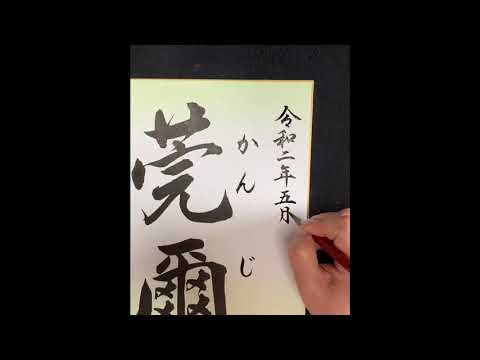 令和二年五月
かんじ
莞爾